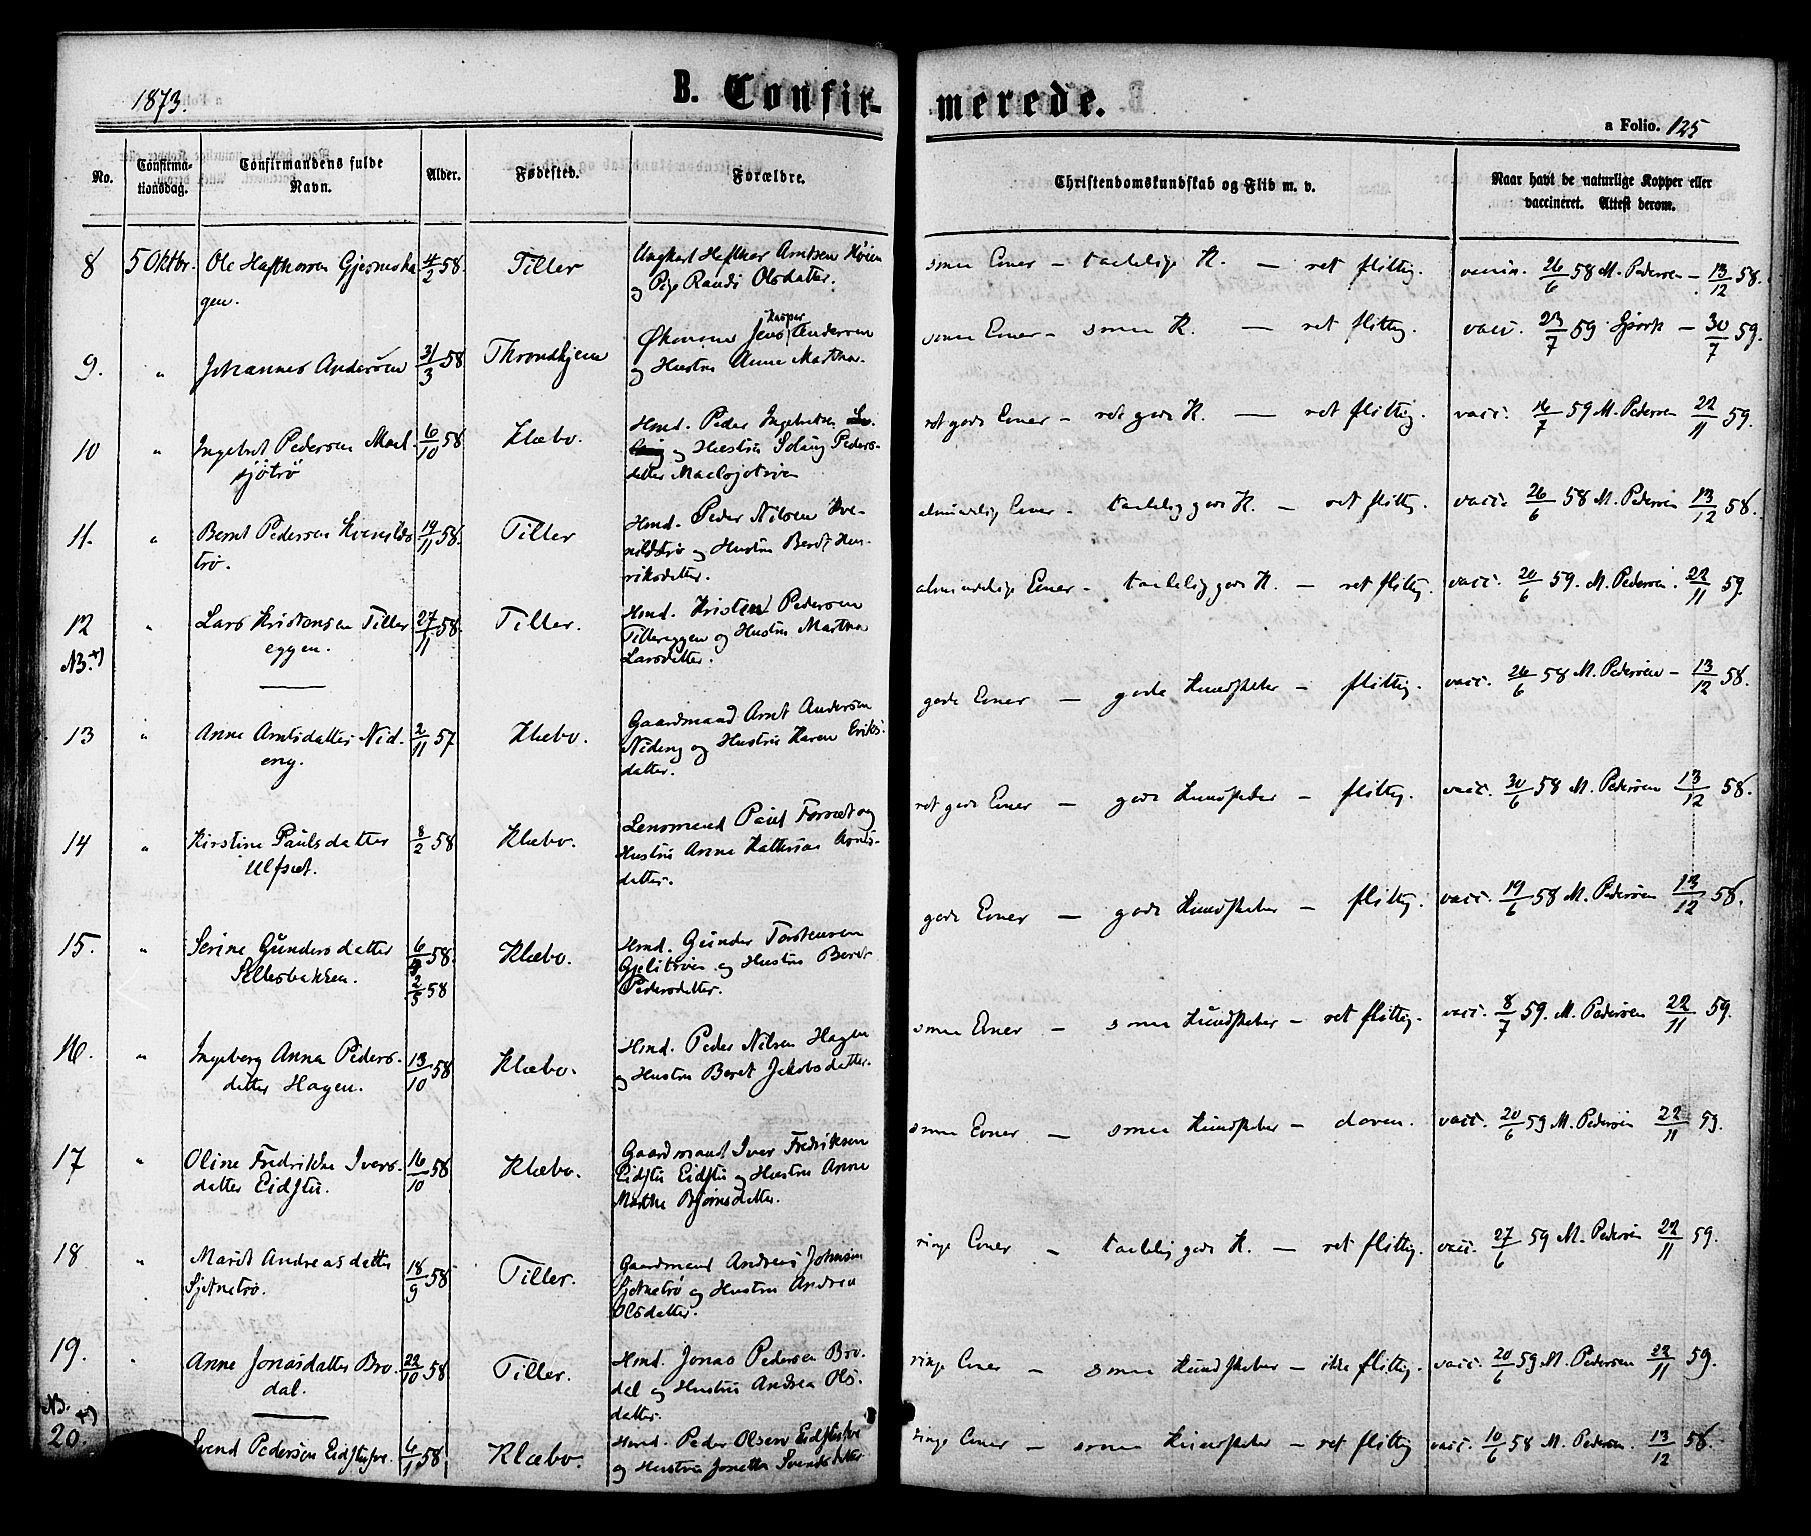 1873.
B. Confir-
merede.
a Folio. 125
No.
Confirma-
tionsdag.
Confirmandens fulde
Navn.
Alder.
Fødested.
Forældre.
Christendomskundskab og Flid m. v.
Naar havt de naturlige Kopper eller
vaccineret. Attest derom.
8 5 Oktbr. Ole Hafthorsen 4/2 58. Tiller
gen.
og Pige Randi Olsdatter.
smaa Evner - taalelige K. - ret flittig.
vaccin. 26/6 58 M. Pedersen - 13/12 58.
9. " Johannes Andersen 31/3 58 Throndhjem
Jens Kasper Andersen
og Hustru Anne Martha
smaa Evner - smaa K. - ret flittig.
vacc. 23/7 59 - 30/7 59.
10 " Ingebret Pedersen Mæl- 6/10 58 Klæbo.
sjøtrø
Hmd. Peder Ingebretsen
og Hustru Solvig Peders-
datter Maelsjøtrøen
ret gode Evner - ret gode K. - ret flittig.
vacc. 14/7 59 M. Pedersen 22/11 59.
11. " Bernt Pedersen Kvenilds 19/11 58. Tiller
trø.
Hmd. Peder Nilsen Kve-
nildstrø og Hustru Berit Hen-
riksdatter.
almindelig Evner - taalelig gode K. - ret flittig.
vacc. 26/6 58 M. Pedersen 13/12 58.
12 " Lars Kristensen Tiller 27/11 58. Tiller.
eggen.
NB. +)
Hmd. Kristen Pedersen
Tillereggen og Hustru Martha
Larsdatter.
almindelige Evner - taalelig gode K. - ret flittig.
vacc. 20/6 59. M. Pedersen. 22/11 59.
13 " Anne Arntsdatter Nid- 2/11 57 Klæbo.
eng.
Gaardmand Arnt Andersen
Nideng og Hustru Karen Eriks-
datter.
gode Evner - gode Kundskaber - flittig.
vacc. 26/6 58 M. Pedersen - 13/12 58.
14 " Kirstine Paulsdatter 8/2 58 Klæbo.
Ulfsæt.
Lensmand Paul Forsæt og
Hustru Anne Arnts-
datter.
ret gode Evner - gode Kundskaber - flittig.
vacc. 30/6 58 M. Pedersen 13/12 58.
15. " Serine Gundersdatter 6/3 58. Klæbo.
Sellesbakken. 2/5 58
Hmd. Gunder Torstensen
og Hustru Berit
Pedersdatter.
gode Evner - gode Kundskaber - flittig.
vacc. 19/6 58 M. Pedersen 13/12 58.
16. " Ingeborg Anna Peders- 13/10 58 Klæbo.
datter Hagen.
Hmd. Peder Nilsen Hagen
og Hustru Beret Jakobsdatter.
smaa Evner - smaa Kundskaber - ret flittig.
vacc. 8/7 59. M. Pedersen 22/11 59.
17 " Oline Fredrikke Ivers- 16/10 58 Klæbo.
datter Eidstu.
Gaardmand Iver Fredriksen
Eidstu Eidstu og Hustru Anne
Marthe Bjørnsdatter.
smaa Evner - smaa Kundskaber - doven.
vacc. 20/6 59 M. Pedersen 22/11 59.
18 " Marit Andreasdatter 18/9 58 Tiller.
Sjetnetrø.
Gaardmand Andreas Johnsen
Sjetnetrø og Hustru Andrea
Olsdatter.
ringe Evner - taalelig gode K. - ret flittig.
vacc. 27/6 59 M. Pedersen 22/11 59.
19. " Anne Jonasdatter Bro- 22/10 58 Tiller.
dal.
Hmd. Jonas Pedersen Bro-
dal og Hustru Andrea Ols-
datter.
ringe Evner - smaa Kundskaber - ikke flittig.
vacc. 20/6 59 M. Pedersen 22/11 59.
NB. +)
20. Svend Pedersen 6/1 58 Klæbo.
Hmd. Peder Olsen
og Hustru Jonetta Svendsdatter
ringe Evner - smaa Kundskaber - ret flittig
vacc. 10/6 58 M. Pedersen. 13/12 58.